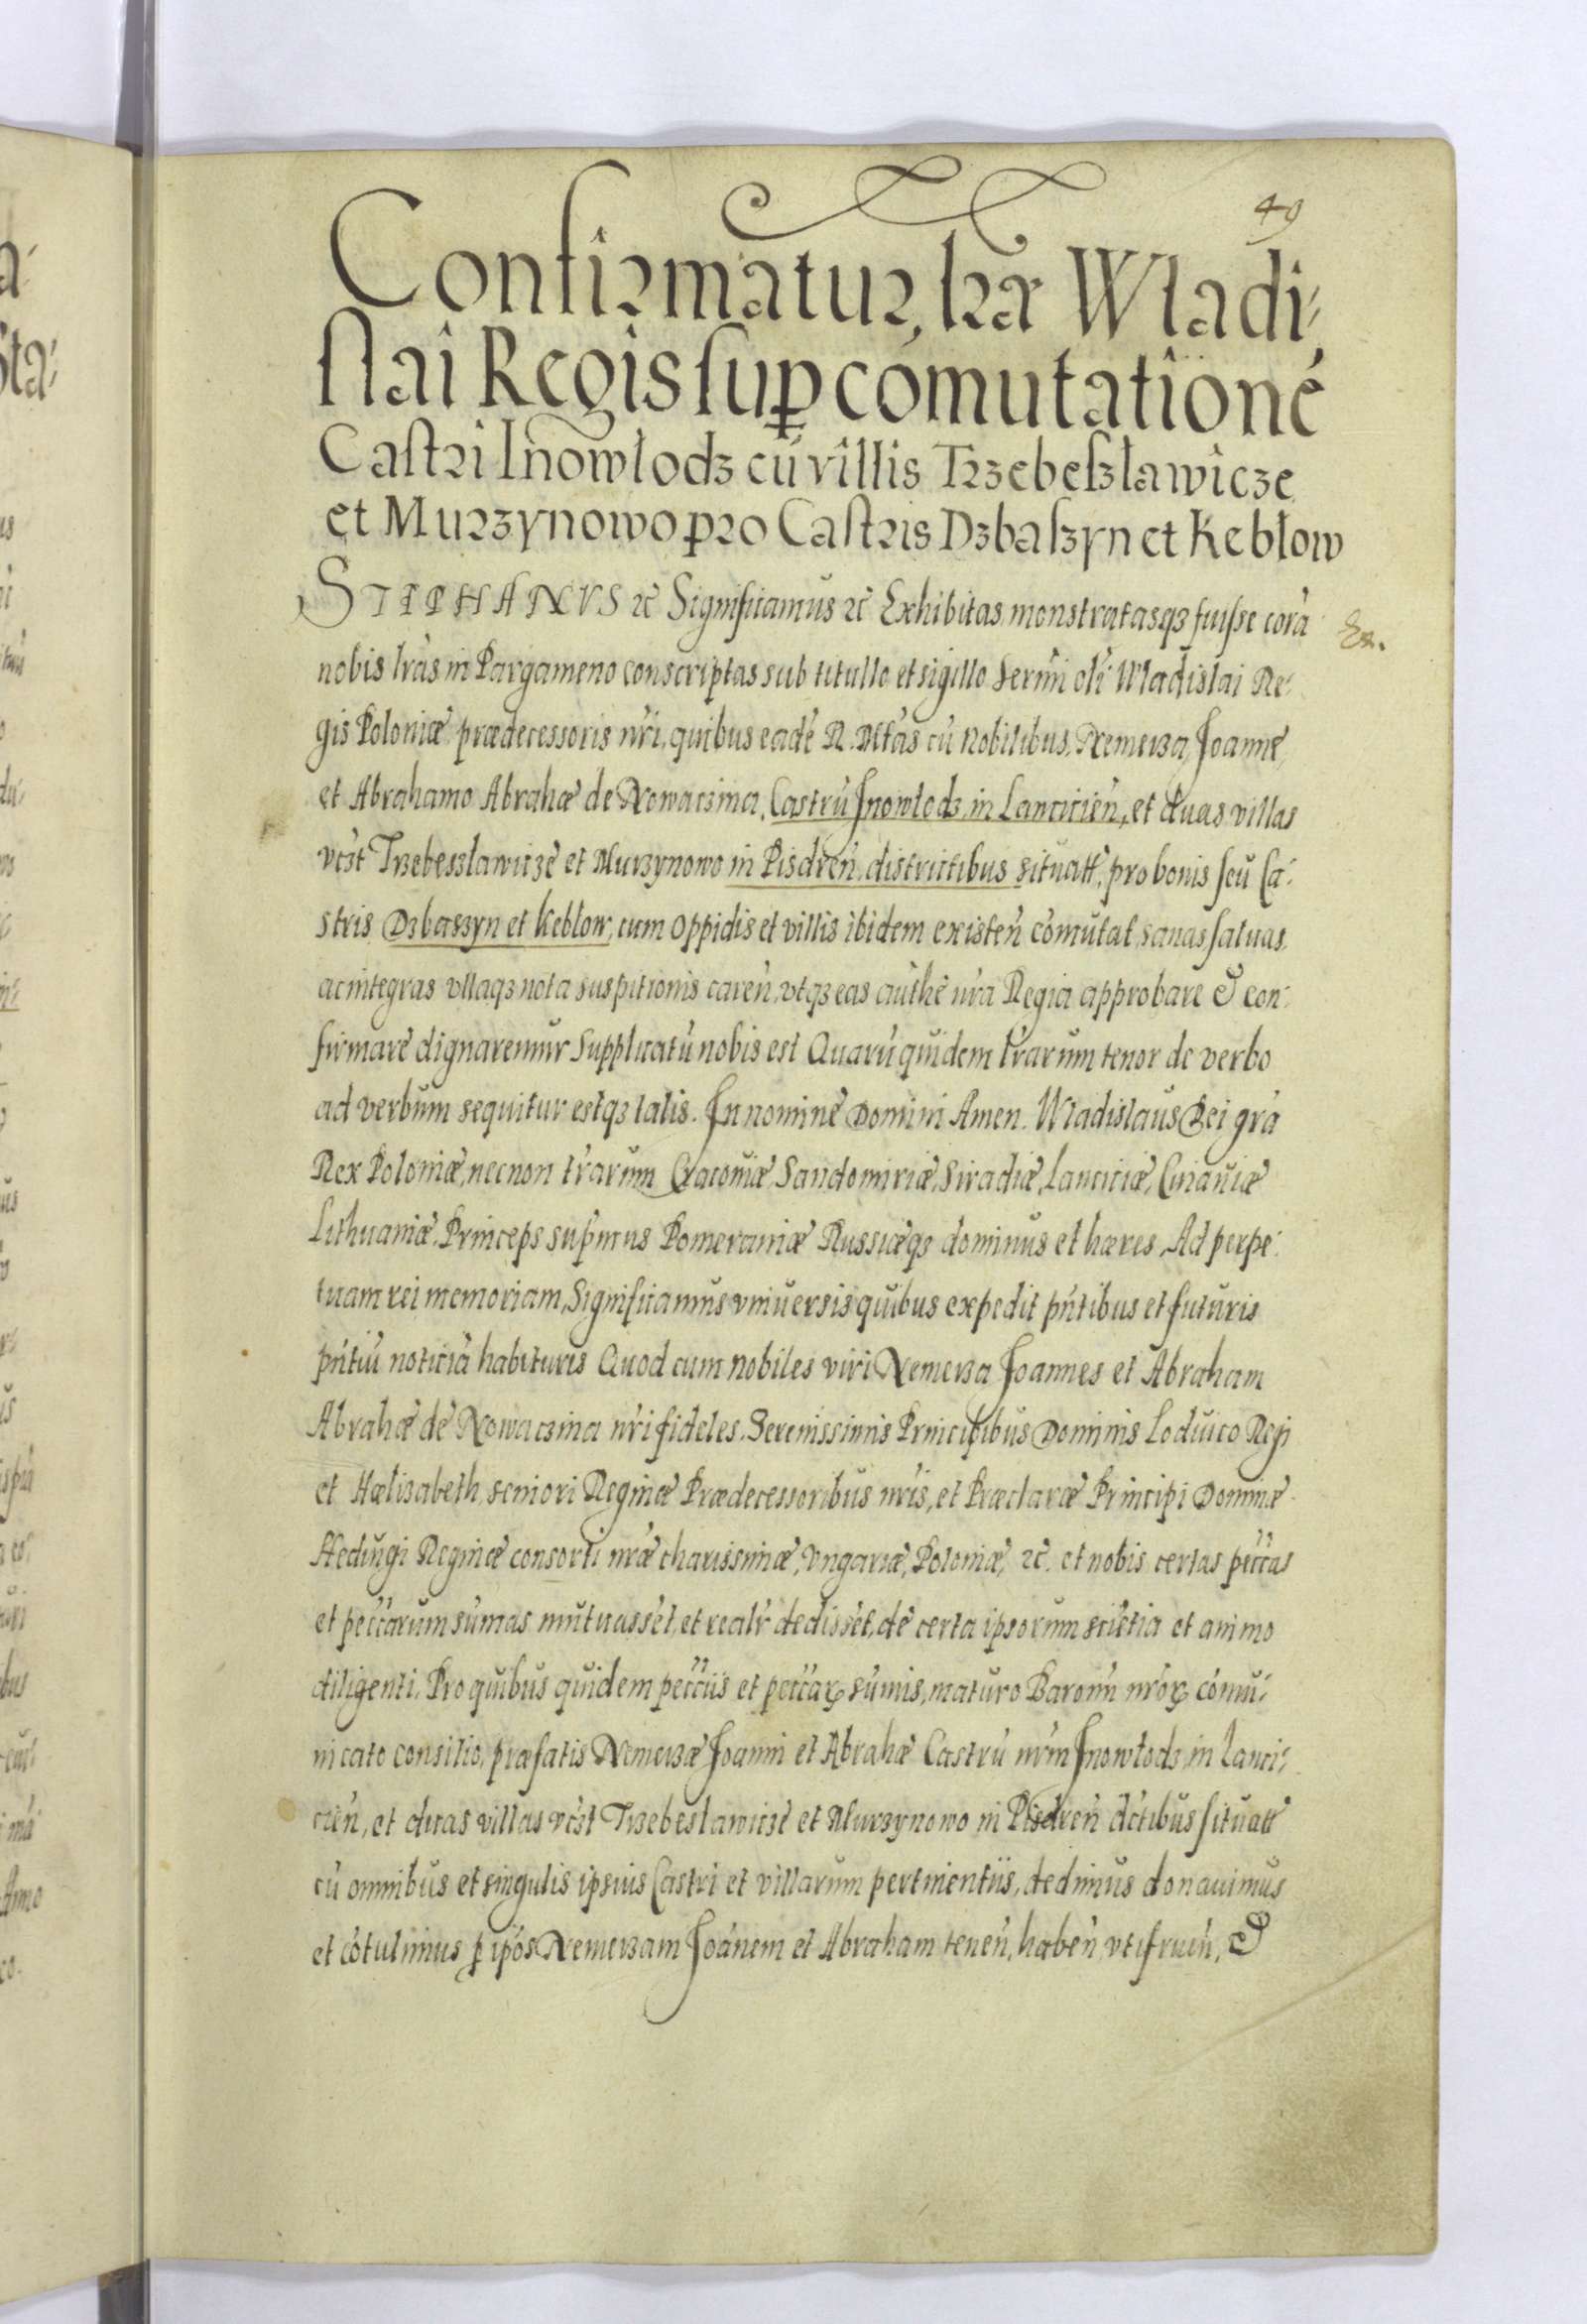 49
Confirmatur lrā Wladi-
slai Regis sup comutationē
Castri Inowłodz cū villis Trzebeszławicze
et Murzynowo pro Castris Dzbaszyn et Kebłow
STEPHANVS &c Significamus &c Exhibitas monstratasqз fuisse corā
Ex.
nobis lrās in Pargameno conscriptas sub titullo et sigillo Sermi oli Wladislai Re-
gis Poloniæ prædecessoris nri, quibus eadē R. Mtās cū Nobilibus, Nemerza, Joanne,
et Abrahamo Abrahæ de Nowaczina, Castrū Jnowłodz in Lancicień, et duas villas
vczt Trzebeszlawiczē et Murzynowo in Pisdreń districtibus situatt, pro bonis seu Ca-
stris Dzbaszyn et Kebłow, cum oppidis et villis ibidem existeń cōmutat, sanas saluas,
ac integras vllaqз nota suspitionis careń, vtqз eas authē nrā Regia approbare & con-
firmarē dignaremur Supplicatū nobis est Quarū quidem lrārum tenor de verbo
ad verbum sequitur estqз talis. Jn nominē Domini Amen. Wladislaus Dei grā
Rex Poloniæ, necnon trārum Cracouiæ, Sandomiriæ, Siradiæ, Lanciciæ, Cuiauiæ
Lithuaniæ, Princeps supmus Pomeraniæ Russiæqз dominus et hæres, Ad perpe-
tuam rei memoriam, Significamus vniuersis quibus expedit pńtibus et futuris
pńtiū noticiā habituris Quod cum nobiles viri Nemerza Joannes et Abraham
Abrahæ dē Nowaczina nri fideles. Serenissimis Principibus Dominis Loduico Regi
et Hælizabeth, seniori Reginæ Prædecessoribus nris, et Præclaræ Principi Dominæ
Hedingi Reginæ consorti nræ charissimæ, Vngariæ, Poloniæ, &c. et nobis certas peccas
et peccarum sumas mutuassēt, et realr dedissēt, dē certa ipsorum scietia et animo
diligenti. Pro quibus quidem pecciis et peccarꝝ sumis, maturo Baronū nrorꝝ cōmu-
nicato consilio, præfatis Nemerzæ Joanni et Abrahæ Castrū nrm Jnowłodz, in Lanci-
cień, et duas villas vczt Trzebeslawiczē et Murzynowo in Pisdreń dctibus situatt
cū omnibus et singulis ipsius Castri et villarum pertinentiis, dedimus donauimus
et cōtulimus p ipōs Nemerzam Joānem et Abraham teneń, habeń, vtifrueń, &